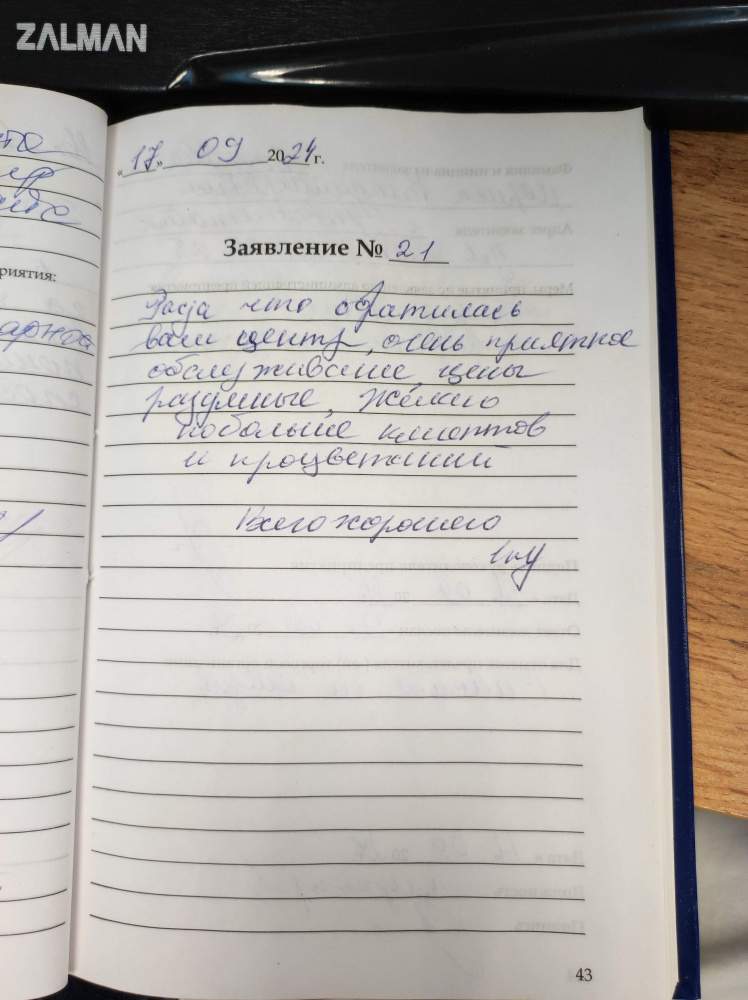 ZALMAN
«17» 09 2024г.
Заявление № 21
Рада что обратилась
ваш центр, очень приятное
обслуживание, цены
разумные, желаю
побольше клиентов
и процветаний
Всего хорошего
риятия:
43